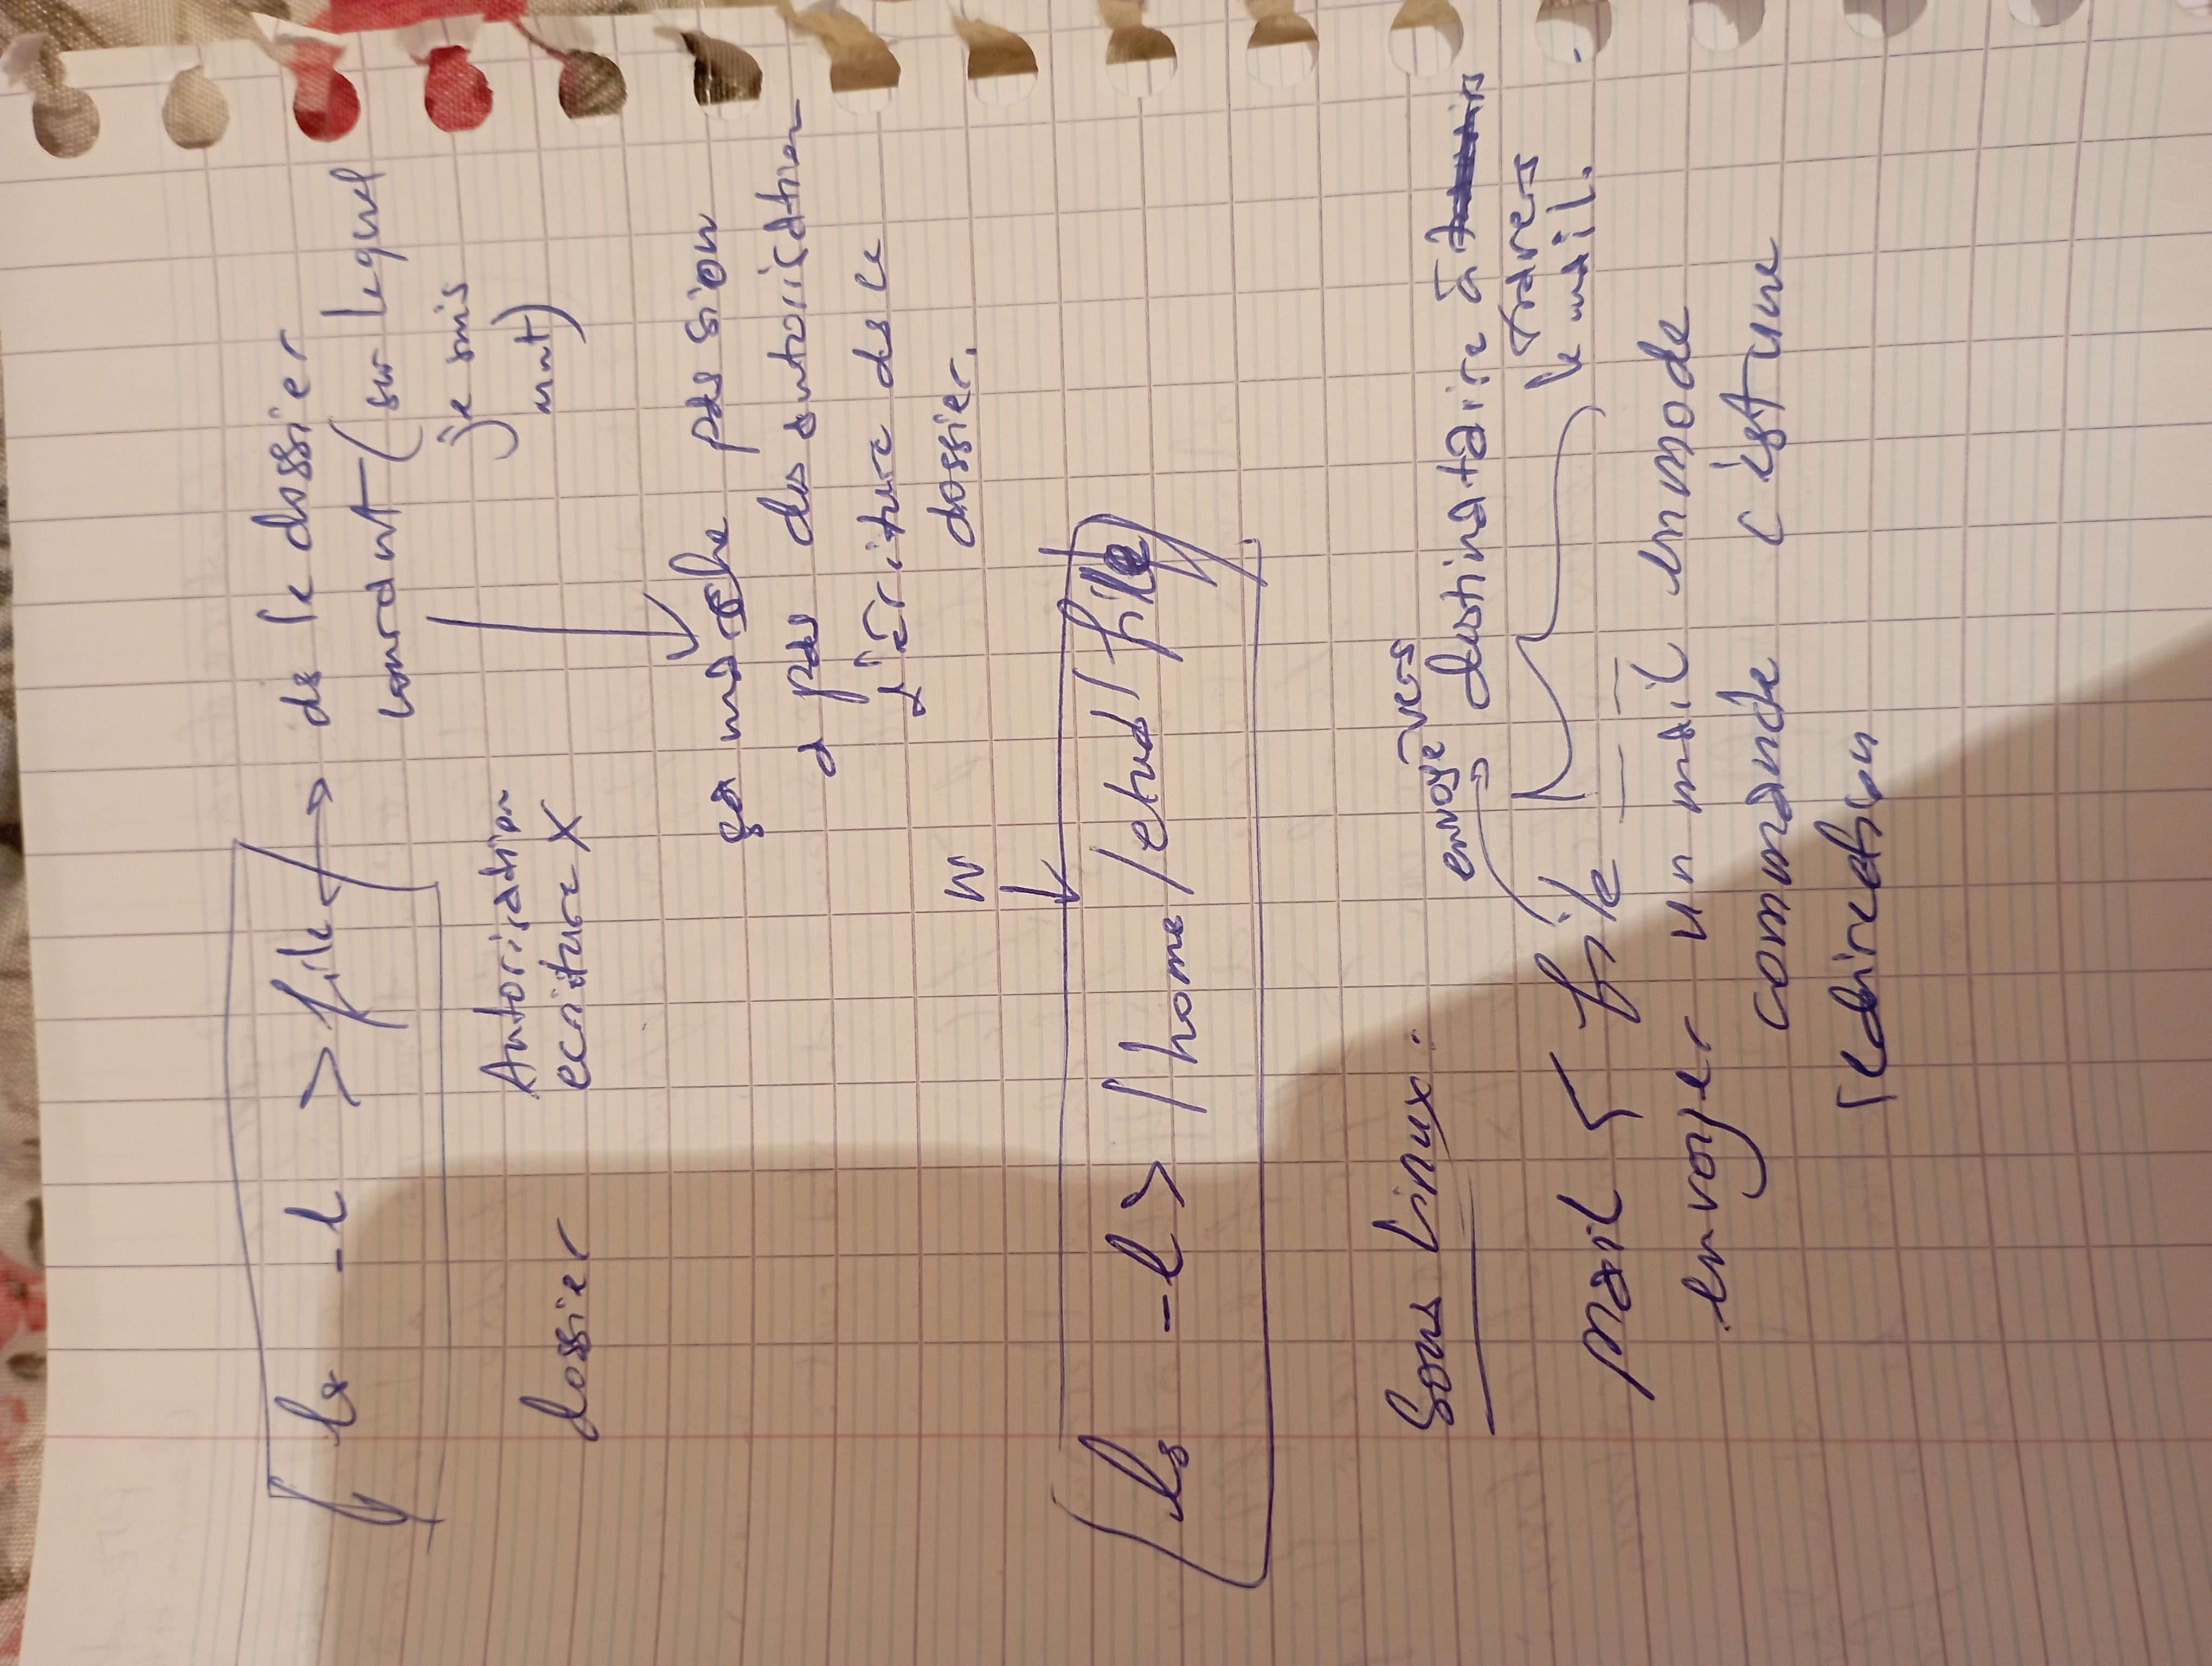 ls -l > file → ds le dossier
courant (sur lequel
je suis
mnt)
Autorisation
dossier ecriture X
ça marche pas si on
a pas des autorisation
d'écriture ds le
dossier.
W
ls -l > /home/etud/file
Sous Linux :
envoyé vers
destinataire à
travers
mail < file
le mail.
envoyer un mail en mode
commande c'est une
redirection